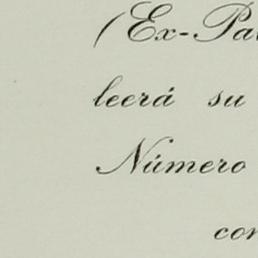 (Ex-Pa
leerá su
Número
con